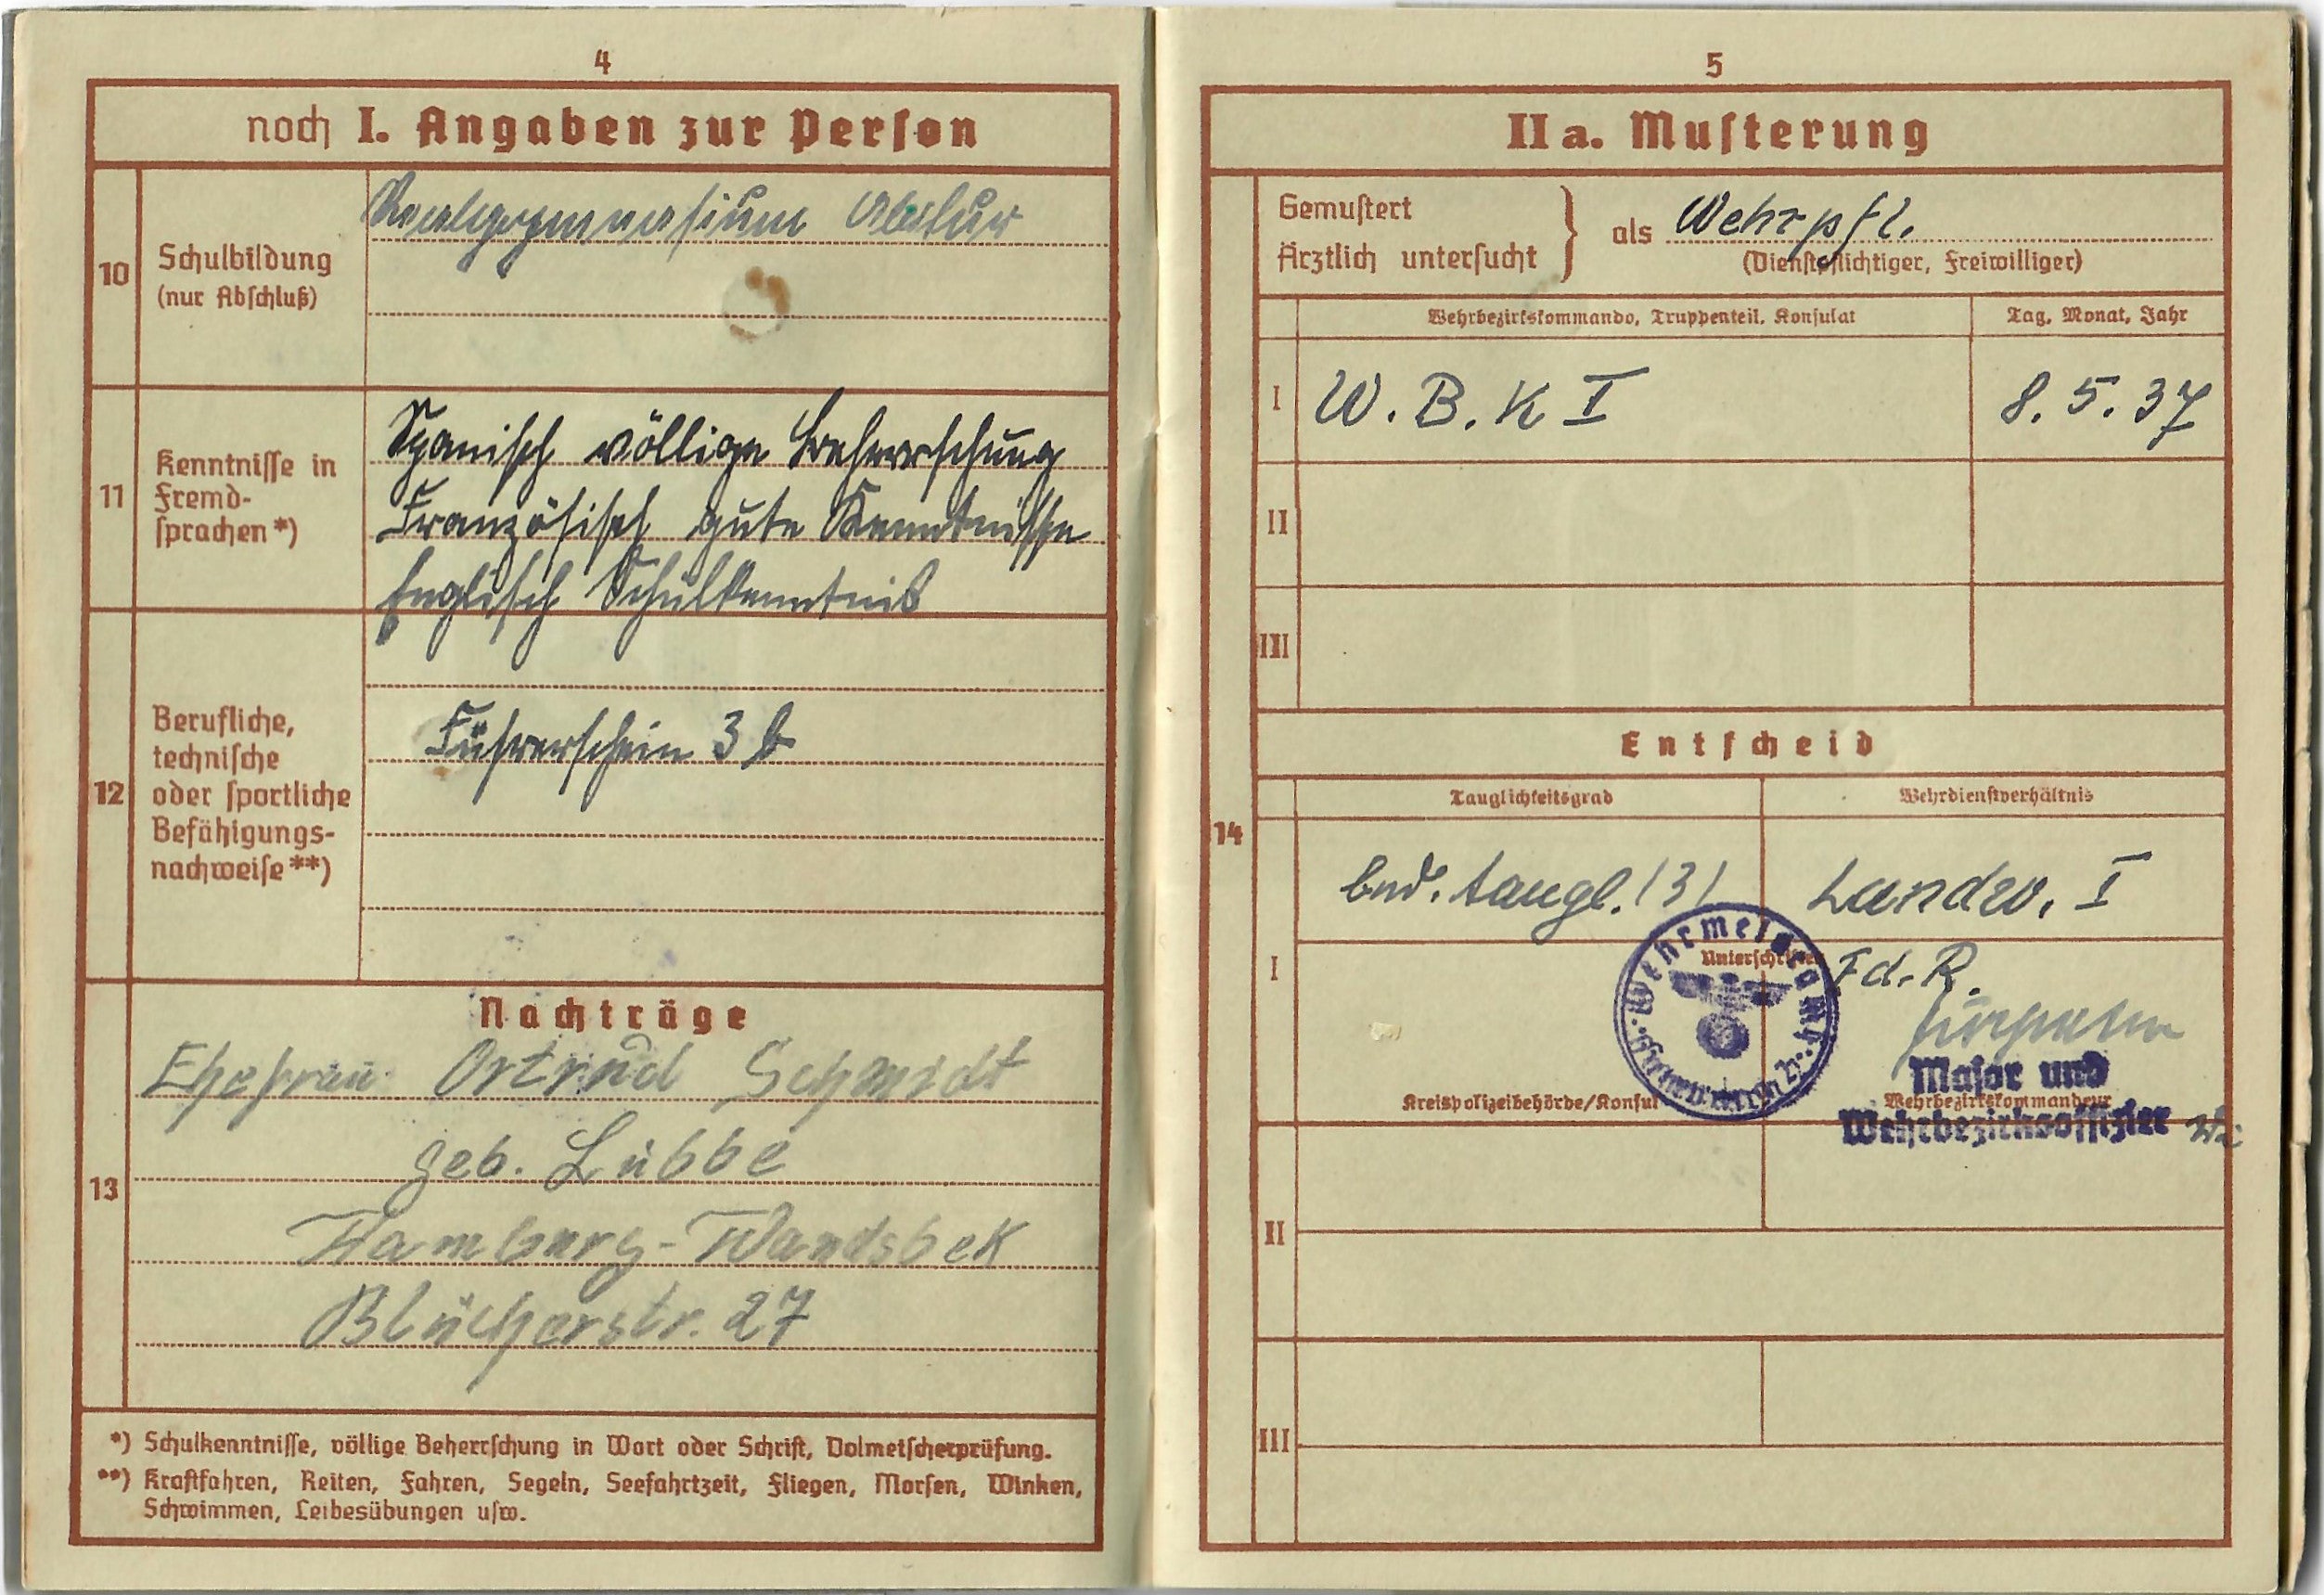 4
noch I. Angaben zur Person
10
Schulbildung
(nur Abschluß)
Realgymnasium Abitur
11
Kenntnisse in
Fremd-
sprachen *)
Spanisch völlige Beherrschung
Französisch gute Kenntnisse
Englisch Schulkenntnis
12
Berufliche,
technische
oder sportliche
Befähigungs-
nachweise **)
Führerschein 3 b
13
Nachträge
Ehefrau Ortrud Schmidt
geb. Lübbe
Hamburg-Wandsbek
Blücherstr. 27
*) Schulkenntnisse, völlige Beherrschung in Wort oder Schrift, Dolmetscherprüfung.
**) Kraftfahren, Reiten, Fahren, Segeln, Seefahrtzeit, Fliegen, Morsen, Winken,
Schwimmen, Leibesübungen usw.
5
II a. Musterung
Gemustert
Ärztlich untersucht
} als Wehrpfl.
(Dienstpflichtiger, Freiwilliger)
Wehrbezirkskommando, Truppenteil, Konsulat
Tag, Monat, Jahr
I W. B. K I 8. 5. 37
II
III
Entscheid
14
Tauglichkeitsgrad
Wehrdienstverhältnis
I
bed. taugl. (3) Landw. I
Unterschriften
F.d.R.
Wehrmeldeamt
Major und
Kreispolizeibehörde/Konsul
Wehrbezirkskommandeur
Wehrbezirksoffizier
II
III